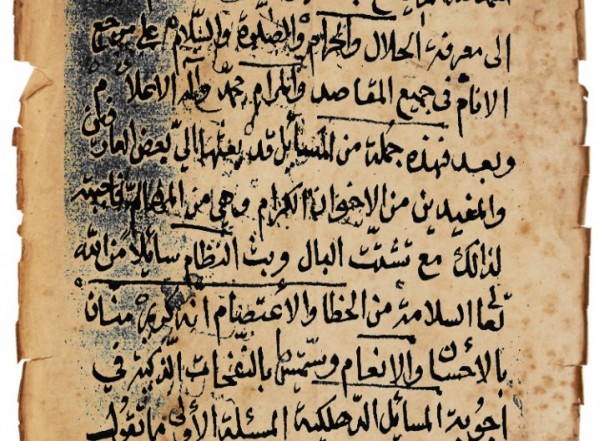 الى معرفة الحلال والحرام والصلوة والسلام على مرجع
الانام في جميع المقاصد والمرام محمد وآله الاعلام
وبعد فهذه جملة من المسائل قد بعثها الي بعض العارفين
والمفيدين من الاخوان الكرام وهي من المهام فاجبته
لذالك مع تشتت البال وبث النظام سائلا من الله
تعا السلامة من الخطا والاعتصام انه كريم منان
بالاحسان والانعام وسميتها بالنفحات الذكية في
اجوبة المسائل الدهلكية المسئلة الأولى ما تقول